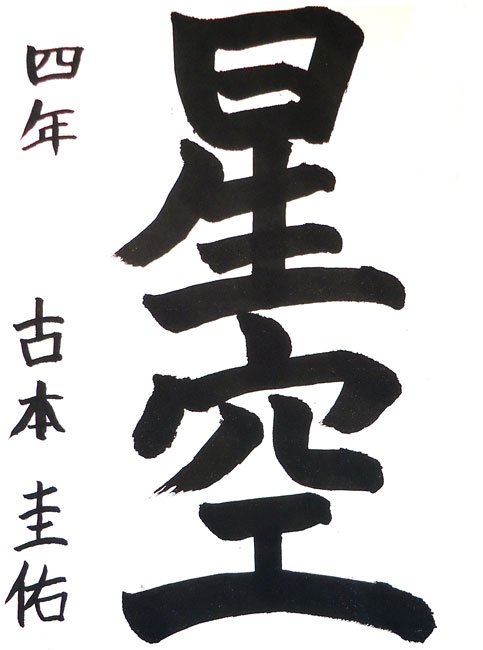 星空
四年 古本 圭佑